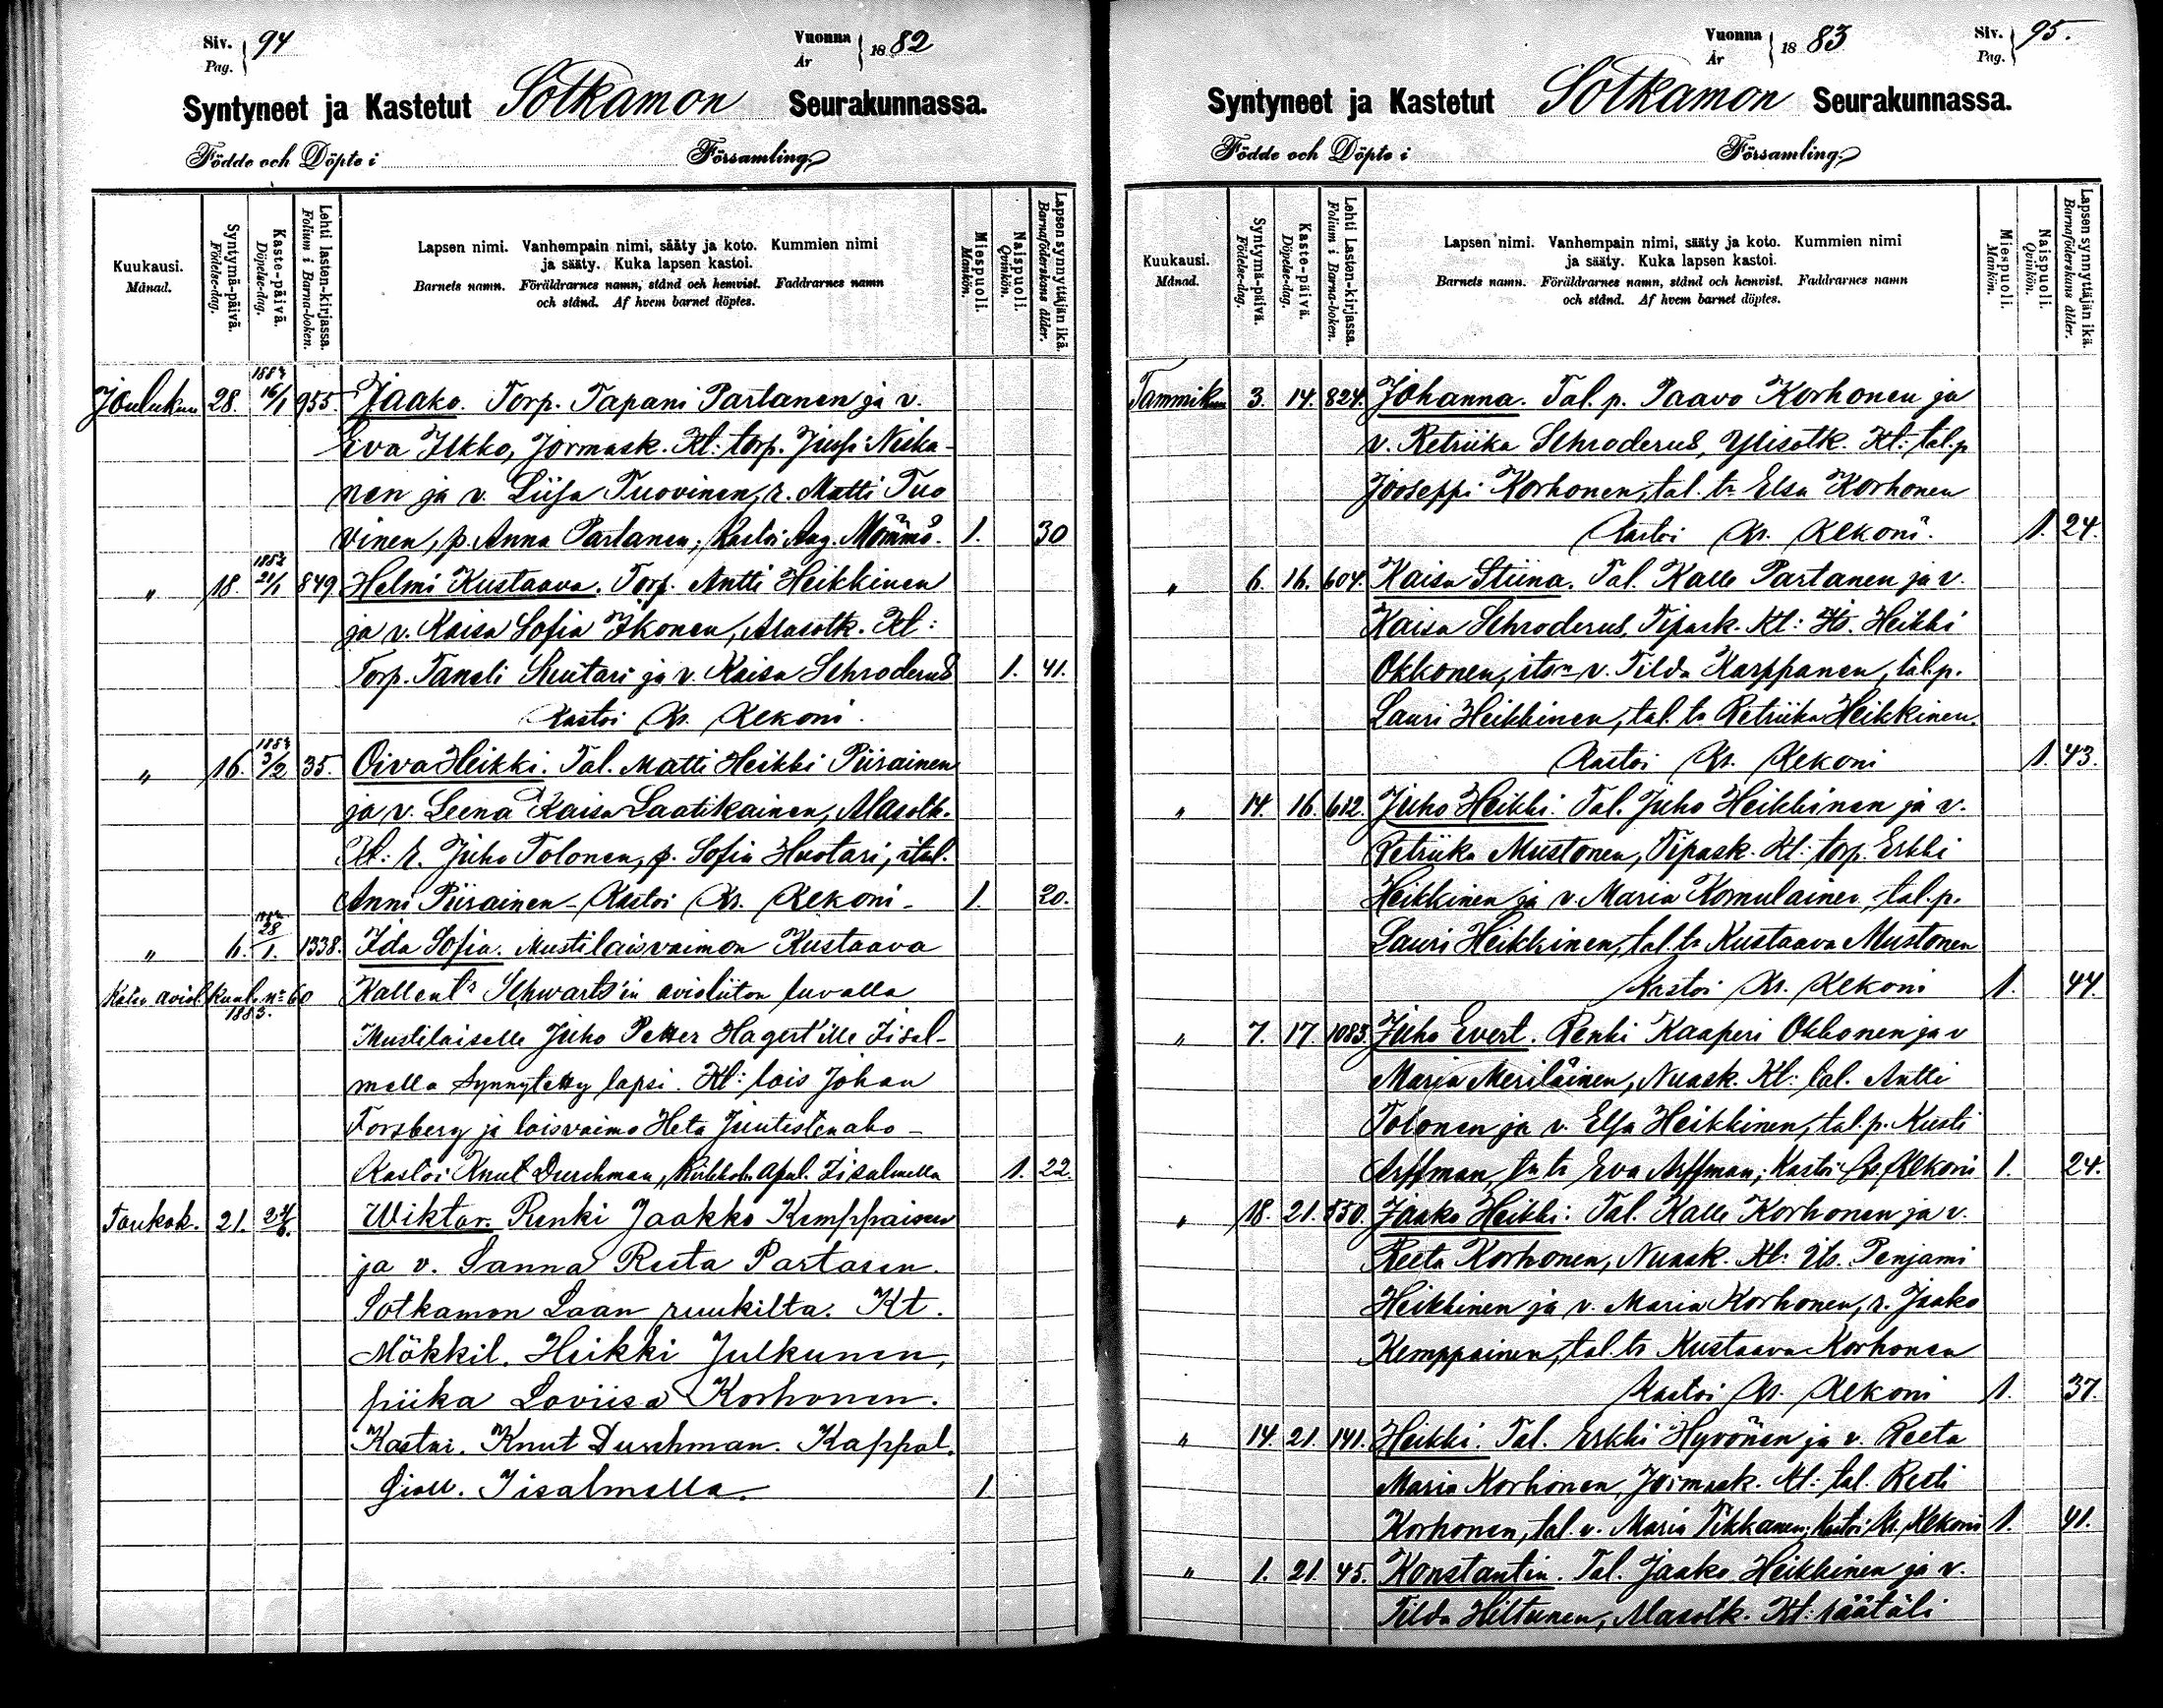 Siv. Pag. 94
Vuonna År 1882
Syntyneet ja Kastetut Sotkamon Seurakunnassa.
Födde och Döpte i Församling.
Kuukausi. Månad.
Syntymä-päivä. Födelse-dag.
Kaste-päivä. Döpelse-dag.
Lehti lasten-kirjassa. Folium i Barna-boken.
Lapsen nimi. Vanhempain nimi, sääty ja koto. Kummien nimi
ja sääty. Kuka lapsen kastoi.
Barnets namn. Föräldrarnes namn, stånd och hemvist. Faddrarnes namn
och stånd. Af hvem barnet döptes.
Miespuoli. Mankön.
Naispuoli. Qvinkön.
Lapsen synnyttäjän ikä. Barnaföderskans ålder.
1883
Joulukuu 28. 16/1 955. Jaako. Torp. Tapani Partanen ja v.
Eva Ilkko, Jormask. Kt: torp. Jussi Niska-
nen ja v. Liisa Tuovinen, r. Matti Tuo
vinen, p. Anna Partanen; Kastoi Aug. Mömmö. 1. 30
1883
" 18. 21/1 849 Helmi Kustaava. Torp. Antti Heikkinen
ja v. Kaisa Sofia Ikonen, Alasotk. Kt:
Torp. Taneli Huotari ja v. Kaisa Schroderus 1. 41.
Kastoi Kr. Rekoni.
1883
" 16. 3/2 35. Oiva Heikki. Tal. Matti Heikki Piirainen
ja v. Leena Kaisa Laatikainen, Alasotk.
Kt: r. Juho Tolonen, p. Sofia Huotari, ital.
Anni Piirainen - Kastoi Kr. Rekoni - 1. 20.
" 6. 28/1. 1338. Ida Sofia. Mustilaisvaimon Kustaava
Katso aviol. kuul. no 60 Kallent's Schwarts'in avioliiton luvalla
1883.
Mustilaiselle Juho Petter Hagert'ille Iisal-
mella synnytetty lapsi. Kt: lois Johan
Forsberg ja loisvaimo Heta Juutistenaho -
Kastoi Knut Durchman, Kirkkoh. apul. Iisalmella 1. 22.
Toukok. 21. Wiktor. Renki Jaakko Kemppaisen
ja v. Sanna Reeta Partasen.
Sotkamon Laan ruukilta. Kt.
Mökkil. Heikki Julkunen,
piika Loviisa Korhonen.
Kastoi. Knut Durchman. Kappal.
Iisalmella. 1
Vuonna År 1883
Siv. Pag. 95.
Syntyneet ja Kastetut Sotkamon Seurakunnassa.
Födde och Döpte i Församling.
Kuukausi. Månad.
Syntymä-päivä. Födelse-dag.
Kaste-päivä. Döpelse-dag.
Lehti Lasten-kirjassa. Folium i Barna-boken.
Lapsen nimi. Vanhempain nimi, sääty ja koto. Kummien nimi
ja sääty. Kuka lapsen kastoi.
Barnets namn. Föräldrarnes namn, stånd och hemvist. Faddrarnes namn
och stånd. Af hvem barnet döptes.
Miespuoli. Mankön.
Naispuoli. Qvinkön.
Lapsen synnyttäjän ikä. Barnaföderskans ålder.
Tammikuu 3. 14. 824. Johanna. Tal. p. Paavo Korhonen ja
v. Retriika Schroderus, Ylisotk. Kt: tal.p
Jooseppi Korhonen, tal. tr Elsa Korhonen
Kastoi Kr. Rekoni. 1. 24.
" 6. 16. 604. Kaisa Stiina. Tal. Kalle Partanen ja v.
Kaisa Schroderus, Tipask. Kt: Its. Heikki
Okkonen, itsn v. Tilda Karppanen, tal.p.
Lauri Heikkinen, tal. tr Retriika Heikkinen.
Kastoi Kr. Rekoni 1. 43.
" 14. 16. 612. Juho Heikki. Tal. Juho Heikkinen ja v.
Retriika Mustonen, Tipask. Kt: torp. Erkki
Heikkinen ja v. Maria Komulainen, tal.p.
Lauri Heikkinen, tal. tr Kustaava Mustonen
Kastoi Kr. Rekoni 1. 44.
" 7. 17. 1083. Juho Evert. Renki Kaaperi Okkonen ja v
Maria Meriläinen, Nuask. Kt: tal. Antti
Tolonen ja v. Elsa Heikkinen, tal.p. Kusti
Arffman, tn tr Eva Arffman; Kastoi Kr. Rekoni 1. 24.
" 18. 21. 550. Jaako Heikki. Tal. Kalle Korhonen ja v.
Reeta Korhonen, Nuask. Kt: Its. Penjami
Heikkinen ja v. Maria Korhonen, r. Jaako
Kemppainen, tal. tr Kustaava Korhonen
Kastoi Kr. Rekoni 1. 37.
" 14. 21. 141. Heikki. Tal. Erkki Hyvönen ja v. Reeta
Maria Korhonen, Jormask. Kt: tal. Resti
Korhonen, tal. v. Maria Tikkanen; Kastoi Kr. Rekoni 1. 41.
" 1. 21. 45. Konstantin. Tal. Jaako Heikkinen ja v.
Tilda Hiltunen, Alasotk. Kt: räätäli